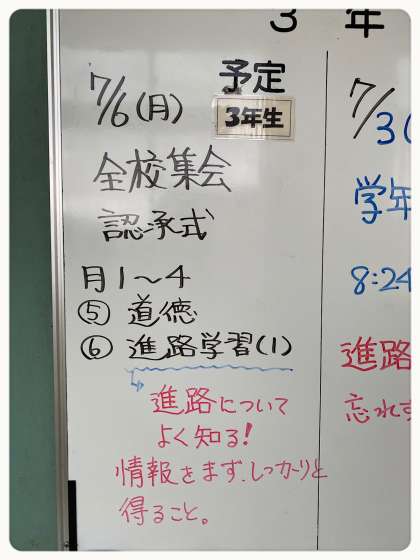 3 年
予定
3年生
7/6(月)
全校集会
認承式
月1～4
⑤ 道徳
⑥ 進路学習(1)
進路について
よく知る!
情報をまず、しっかりと
得ること。
7/3(
学年
8:24
進路
忘れ